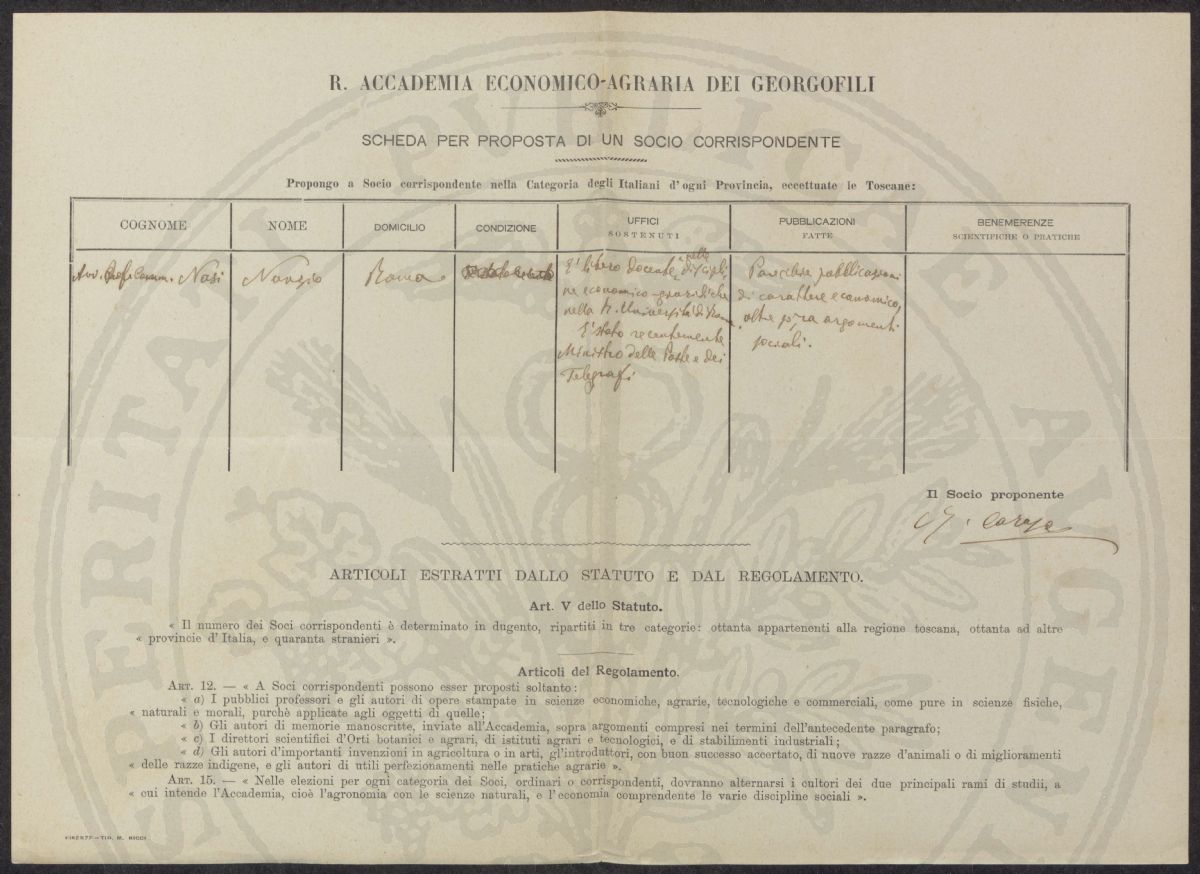 R. ACCADEMIA ECONOMICO-AGRARIA DEI GEORGOFILI
SCHEDA PER PROPOSTA DI UN SOCIO CORRISPONDENTE
Propongo a Socio corrispondente nella Categoria degli Italiani d'ogni Provincia, eccettuate le Toscane:
COGNOME
NOME
DOMICILIO
CONDIZIONE
UFFICI
SOSTENUTI
PUBBLICAZIONI
FATTE
BENEMERENZE
SCIENTIFICHE O PRATICHE
Avv. Prof. Comm. Nasi
Nunzio
Roma
E' libero docente, nelle discipli
ne economico-giuridiche
nella R. Università di Roma
E' stato recentemente
Ministro delle Poste e dei
Telegrafi
Parecchie pubblicazioni
di carattere economico,
altre sopra argomenti
sociali.
Il Socio proponente
ARTICOLI ESTRATTI DALLO STATUTO E DAL REGOLAMENTO.
Art. V dello Statuto.
« Il numero dei Soci corrispondenti è determinato in dugento, ripartiti in tre categorie: ottanta appartenenti alla regione toscana, ottanta ad altre
« provincie d'Italia, e quaranta stranieri ».
Articoli del Regolamento.
ART. 12. — « A Soci corrispondenti possono esser proposti soltanto:
« a) I pubblici professori e gli autori di opere stampate in scienze economiche, agrarie, tecnologiche e commerciali, come pure in scienze fisiche,
« naturali e morali, purchè applicate agli oggetti di quelle;
« b) Gli autori di memorie manoscritte, inviate all'Accademia, sopra argomenti compresi nei termini dell'antecedente paragrafo;
« c) I direttori scientifici d'Orti botanici e agrari, di istituti agrari e tecnologici, e di stabilimenti industriali;
« d) Gli autori d'importanti invenzioni in agricoltura o in arti, gl'introduttori, con buon successo accertato, di nuove razze d'animali o di miglioramenti
« delle razze indigene, e gli autori di utili perfezionamenti nelle pratiche agrarie ».
ART. 15. — « Nelle elezioni per ogni categoria dei Soci, ordinari o corrispondenti, dovranno alternarsi i cultori dei due principali rami di studii, a
« cui intende l'Accademia, cioè l'agronomia con le scienze naturali, e l'economia comprendente le varie discipline sociali ».
FIRENZE.—TIP. M. RICCI